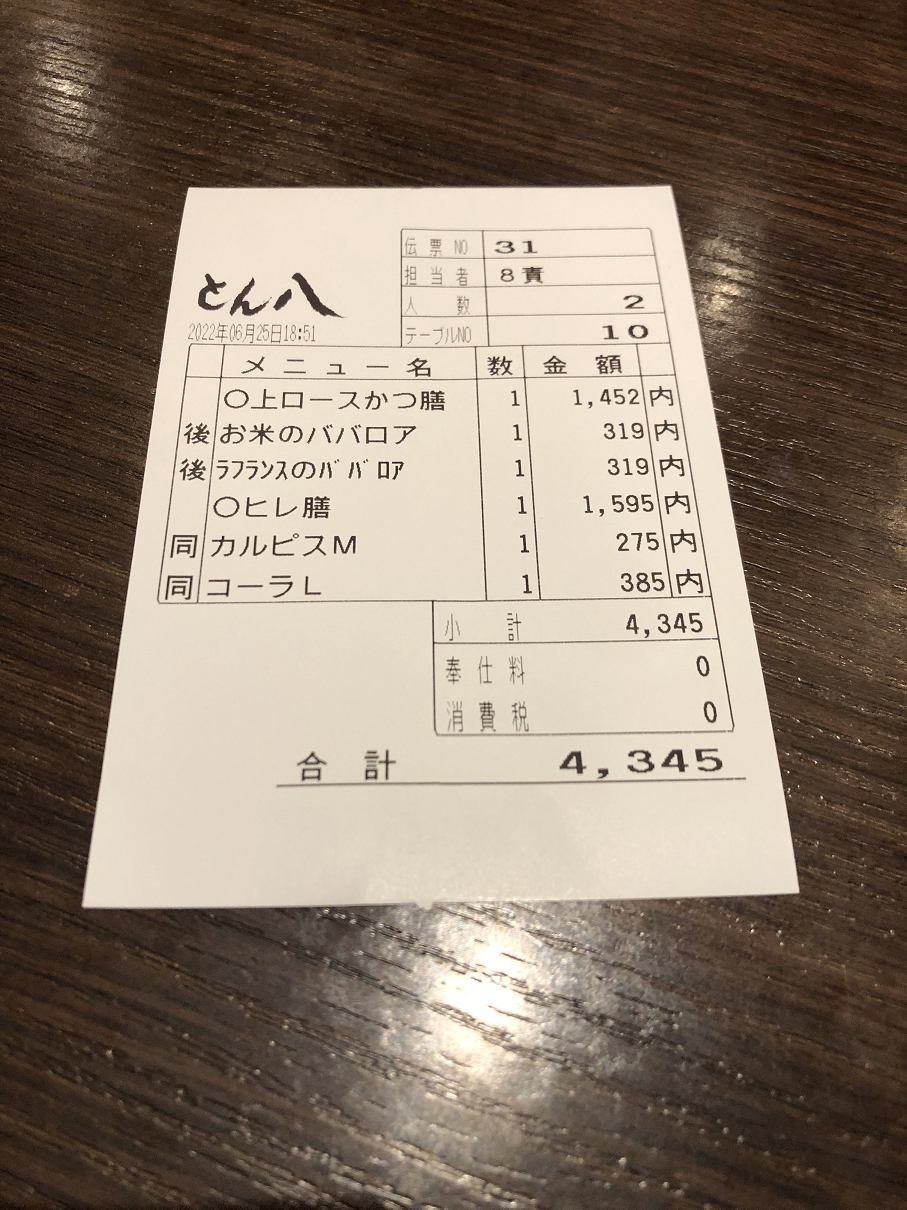 伝票NO 31
担当者 8責
人数 2
テーブルNO 10
とん八
2022年06月25日18:51
メニュー名 数 金額
○上ロースかつ膳 1 1,452 内
後 お米のババロア 1 319 内
後 ラフランスのババロア 1 319 内
○ヒレ膳 1 1,595 内
同 カルピスM 1 275 内
同 コーラL 1 385 内
小計 4,345
奉仕料 0
消費税 0
合計 4,345